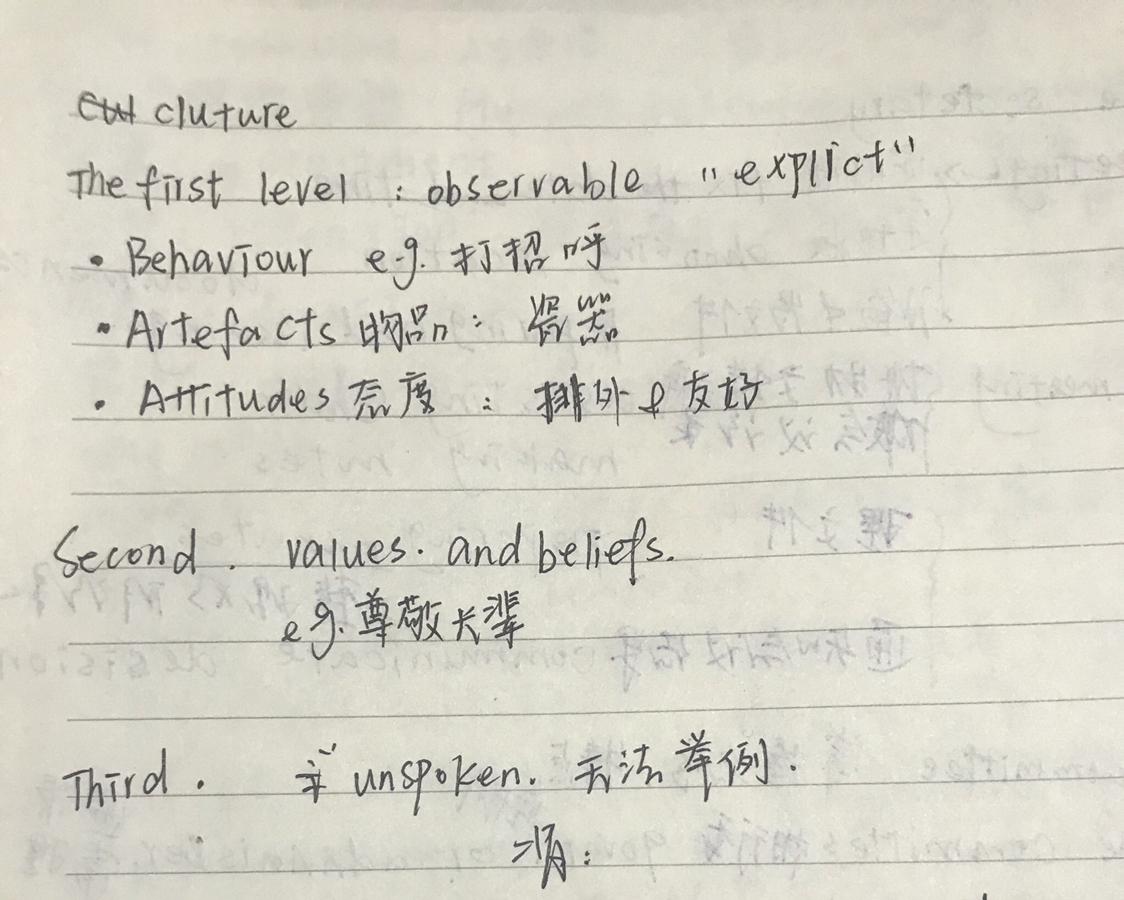 cluture
The first level : observable "explict"
• Behaviour e.g. 打招呼
• Artefacts 物品: 瓷器
• Attitudes 态度: 排外 & 友好
Second. values. and beliefs.
e g. 尊敬长辈
Third. unspoken. 无法举例.